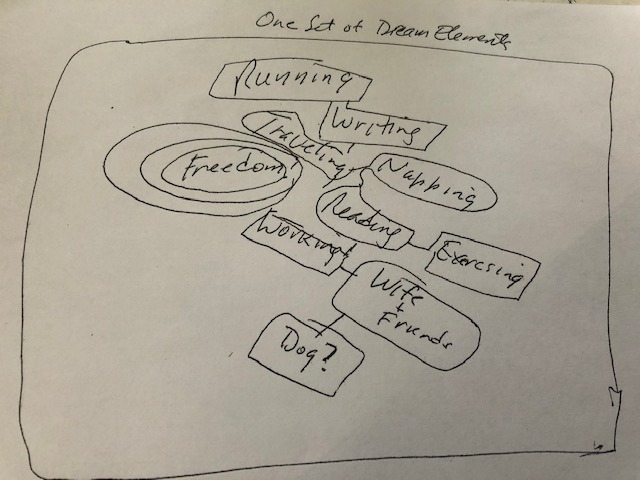 One Set of Dream Elements
Running
Writing
Traveling
Freedom
Napping
Reading
Working
Exercsing
Wife
+
Friends
Dog?